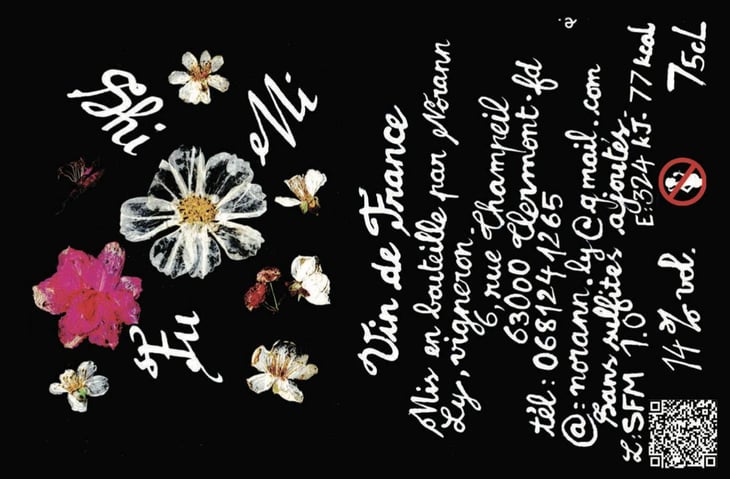 Shi
Fu
Mi
Vin de France
Mis en bouteille par Norann
Ly, vigneron.
6, rue Champeil
63000 Clermont-fd
tél : 0681241265
@: norann.ly@gmail.com
Sans sulfites ajoutés.
L: SFM 1.0 E:324 kJ - 77 kcal
14 % vol. 75cL